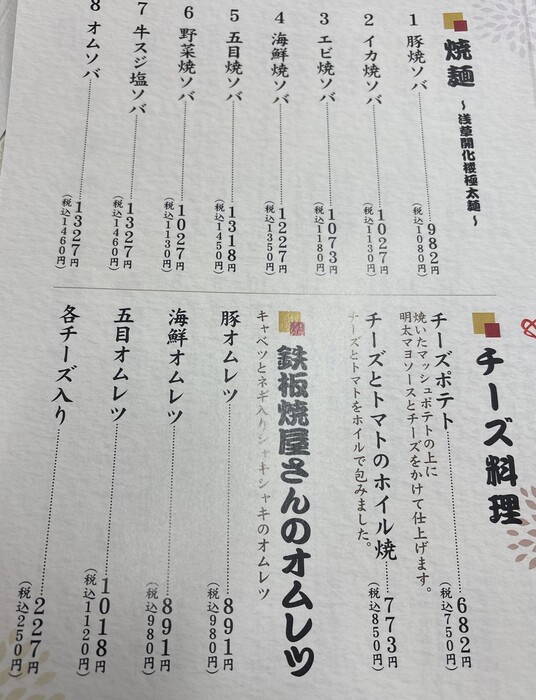 焼麺 ～浅草開化楼極太麺～
1 豚焼ソバ 982円
(税込1080円)
2 イカ焼ソバ 1027円
(税込1130円)
3 エビ焼ソバ 1073円
(税込1180円)
4 海鮮焼ソバ 1227円
(税込1350円)
5 五目焼ソバ 1318円
(税込1450円)
6 野菜焼ソバ 1027円
(税込1130円)
7 牛スジ塩ソバ 1327円
(税込1460円)
8 オムソバ 1327円
(税込1460円)
チーズ料理
チーズポテト 682円
(税込750円)
焼いたマッシュポテトの上に
明太マヨソースとチーズをかけて仕上げます。
チーズとトマトのホイル焼 773円
(税込850円)
チーズとトマトをホイルで包みました。
鉄板焼屋さんのオムレツ
キャベツとネギ入りシャキシャキのオムレツ
豚オムレツ 891円
(税込980円)
海鮮オムレツ 891円
(税込980円)
五目オムレツ 1018円
(税込1120円)
各チーズ入り 227円
(税込250円)